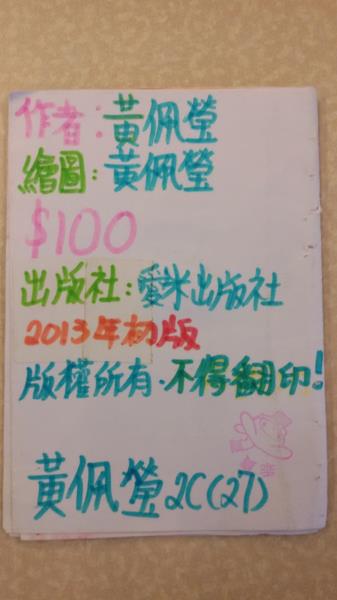 作者:黃佩瑩
繪圖:黃佩瑩
$100
出版社:愛米出版社
2013年初版
版權所有.不得翻印!
黃佩瑩2C(27)